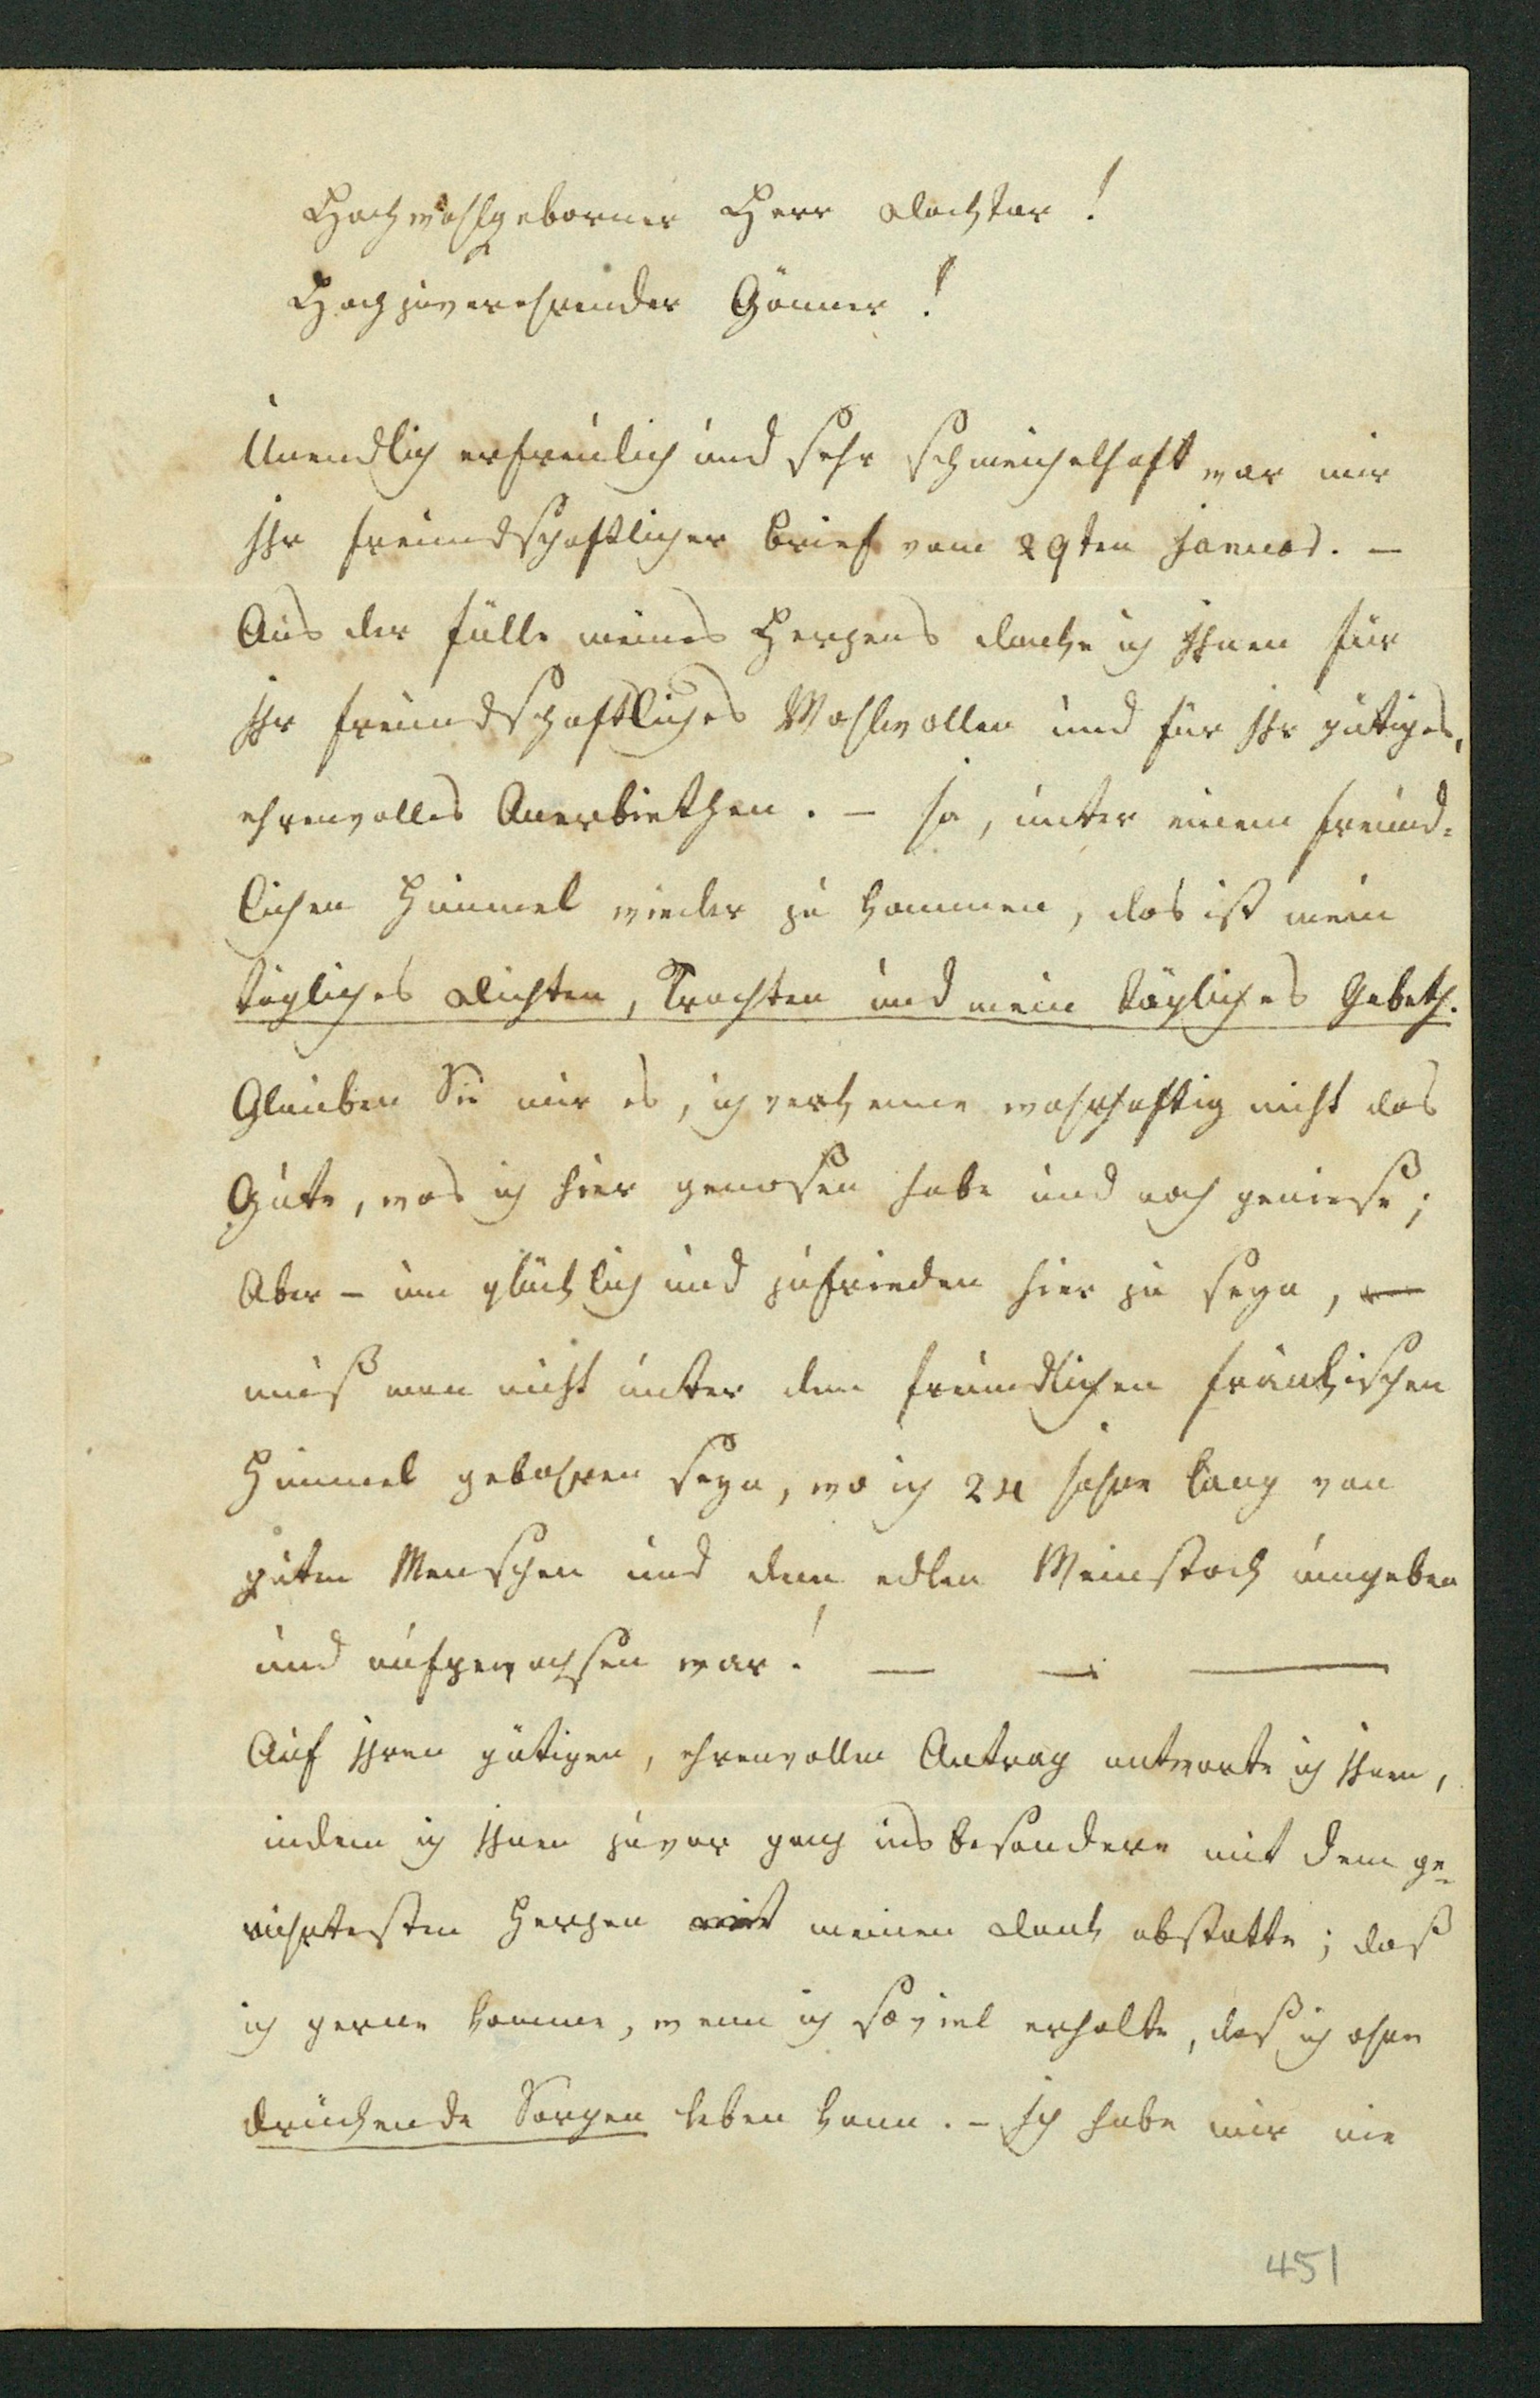 Hochwohlgeborner Herr Docktor!
Hochzuverehrender Gönner!
Unendlich erfreulich und sehr schmeichelhaft war mir
Ihr freundschaftlicher Brief vom 29ten Januar. –
Aus der Fülle meines Herzens danke ich Ihnen für
Ihr freundschaftliches Wohlwollen und für Ihr gütiges,
ehrenvolles Anerbiethen. – Ja, unter einem freund-
lichen Himmel wieder zu kommen, das ist mein
tägliches Dichten, Trachten und mein tägliches Gebeth.
Glauben Sie mir es, ich verkenne wahrhaftig nicht das
Gute, was ich hier genossen habe und noch geniese;
Aber – um glücklich und zufrieden hier zu seyn,
muß man nicht unter dem freundlichen fränkischen
Himmel gebohren seyn, wo ich 24 Jahre lang von
guten Menschen und dem edlen Weinstock umgeben
und aufgewachsen war! — — —
Auf Ihren gütigen, ehrenvollen Antrag antworte ich Ihnen,
indem ich Ihnen zuvor ganz ins besondere mit dem ge-
rührtesten Herzen meinen Dank abstatte; daß
ich gerne komme, wenn ich soviel erhalte, daß ich ohne
drückende Sorgen leben kann. – Ich habe mir nie
451